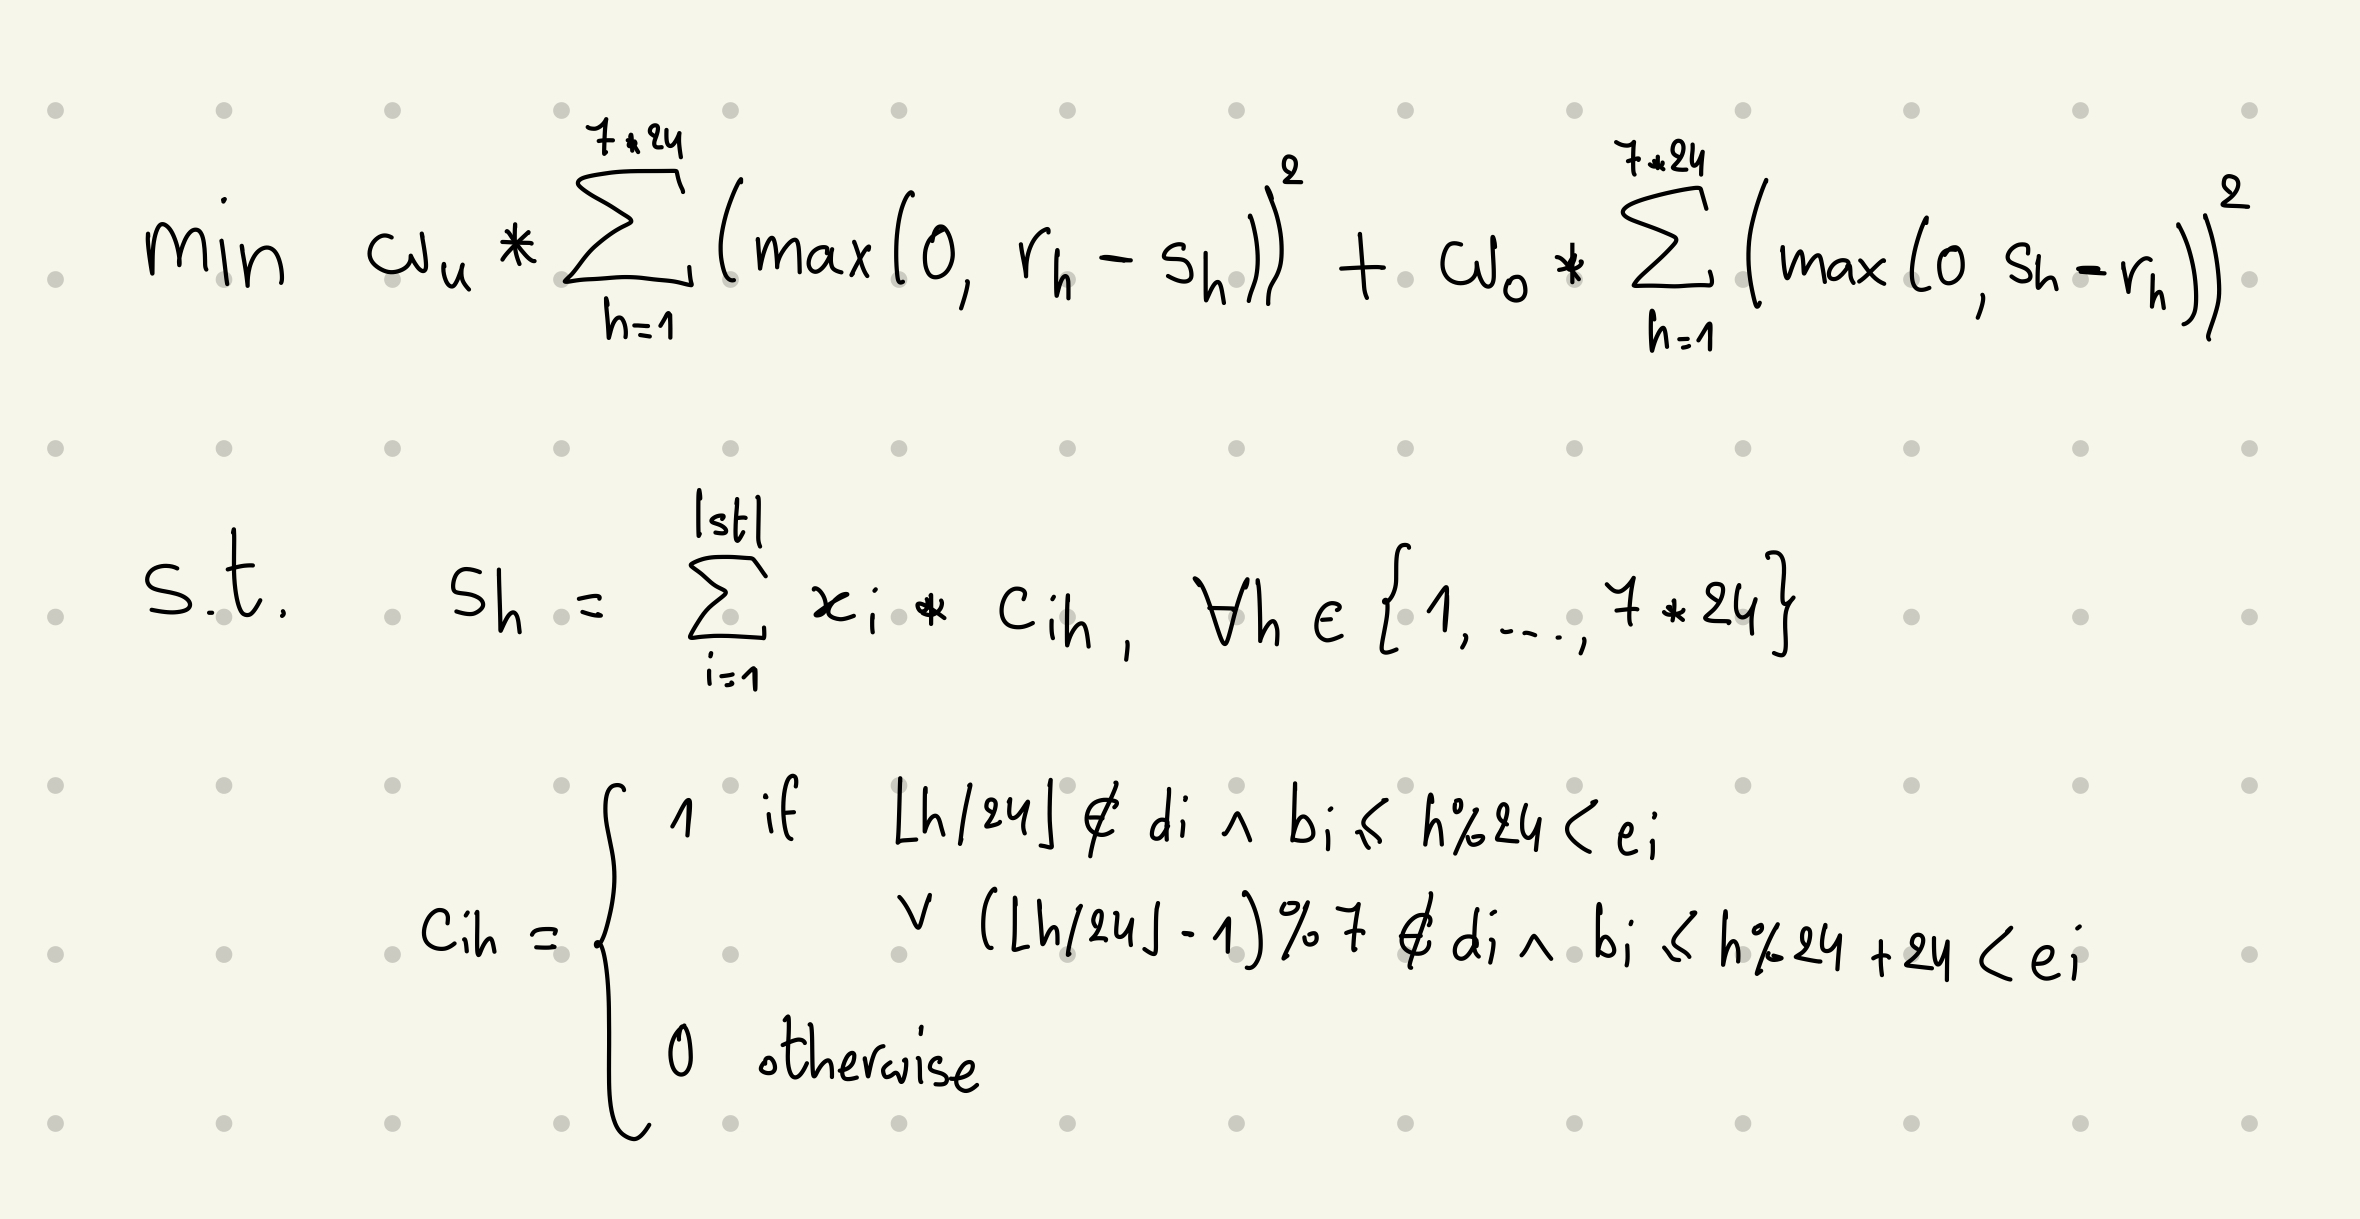 min ω_u * ∑_{h=1}^{7*24} (max(0, r_h - s_h))² + ω_o * ∑_{h=1}^{7*24} (max(0, s_h - r_h))²
s.t. s_h = ∑_{i=1}^{|st|} x_i * c_ih, ∀h ∈ {1, ..., 7*24}
c_ih = { 1 if ⌊h/24⌋ ∉ d_i ∧ b_i ≤ h%24 < e_i
∨ (⌊h/24⌋ - 1)%7 ∉ d_i ∧ b_i ≤ h%24 + 24 < e_i
0 otherwise